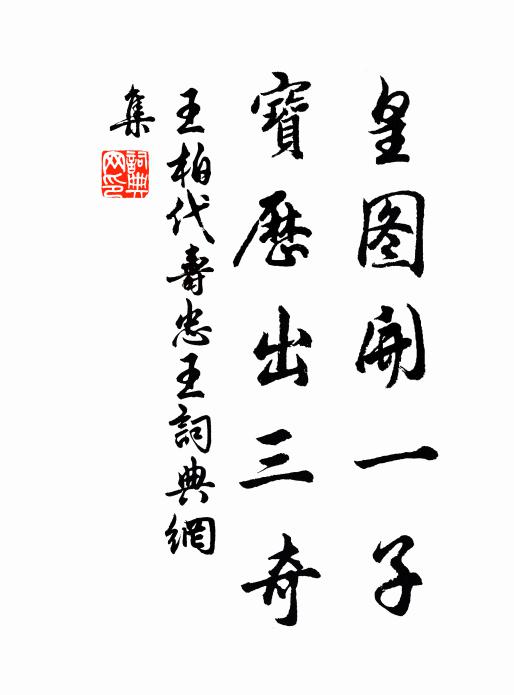 皇图開一子
寶歷出三奇
王柏代壽忠王詞典網
集
詞典
网印